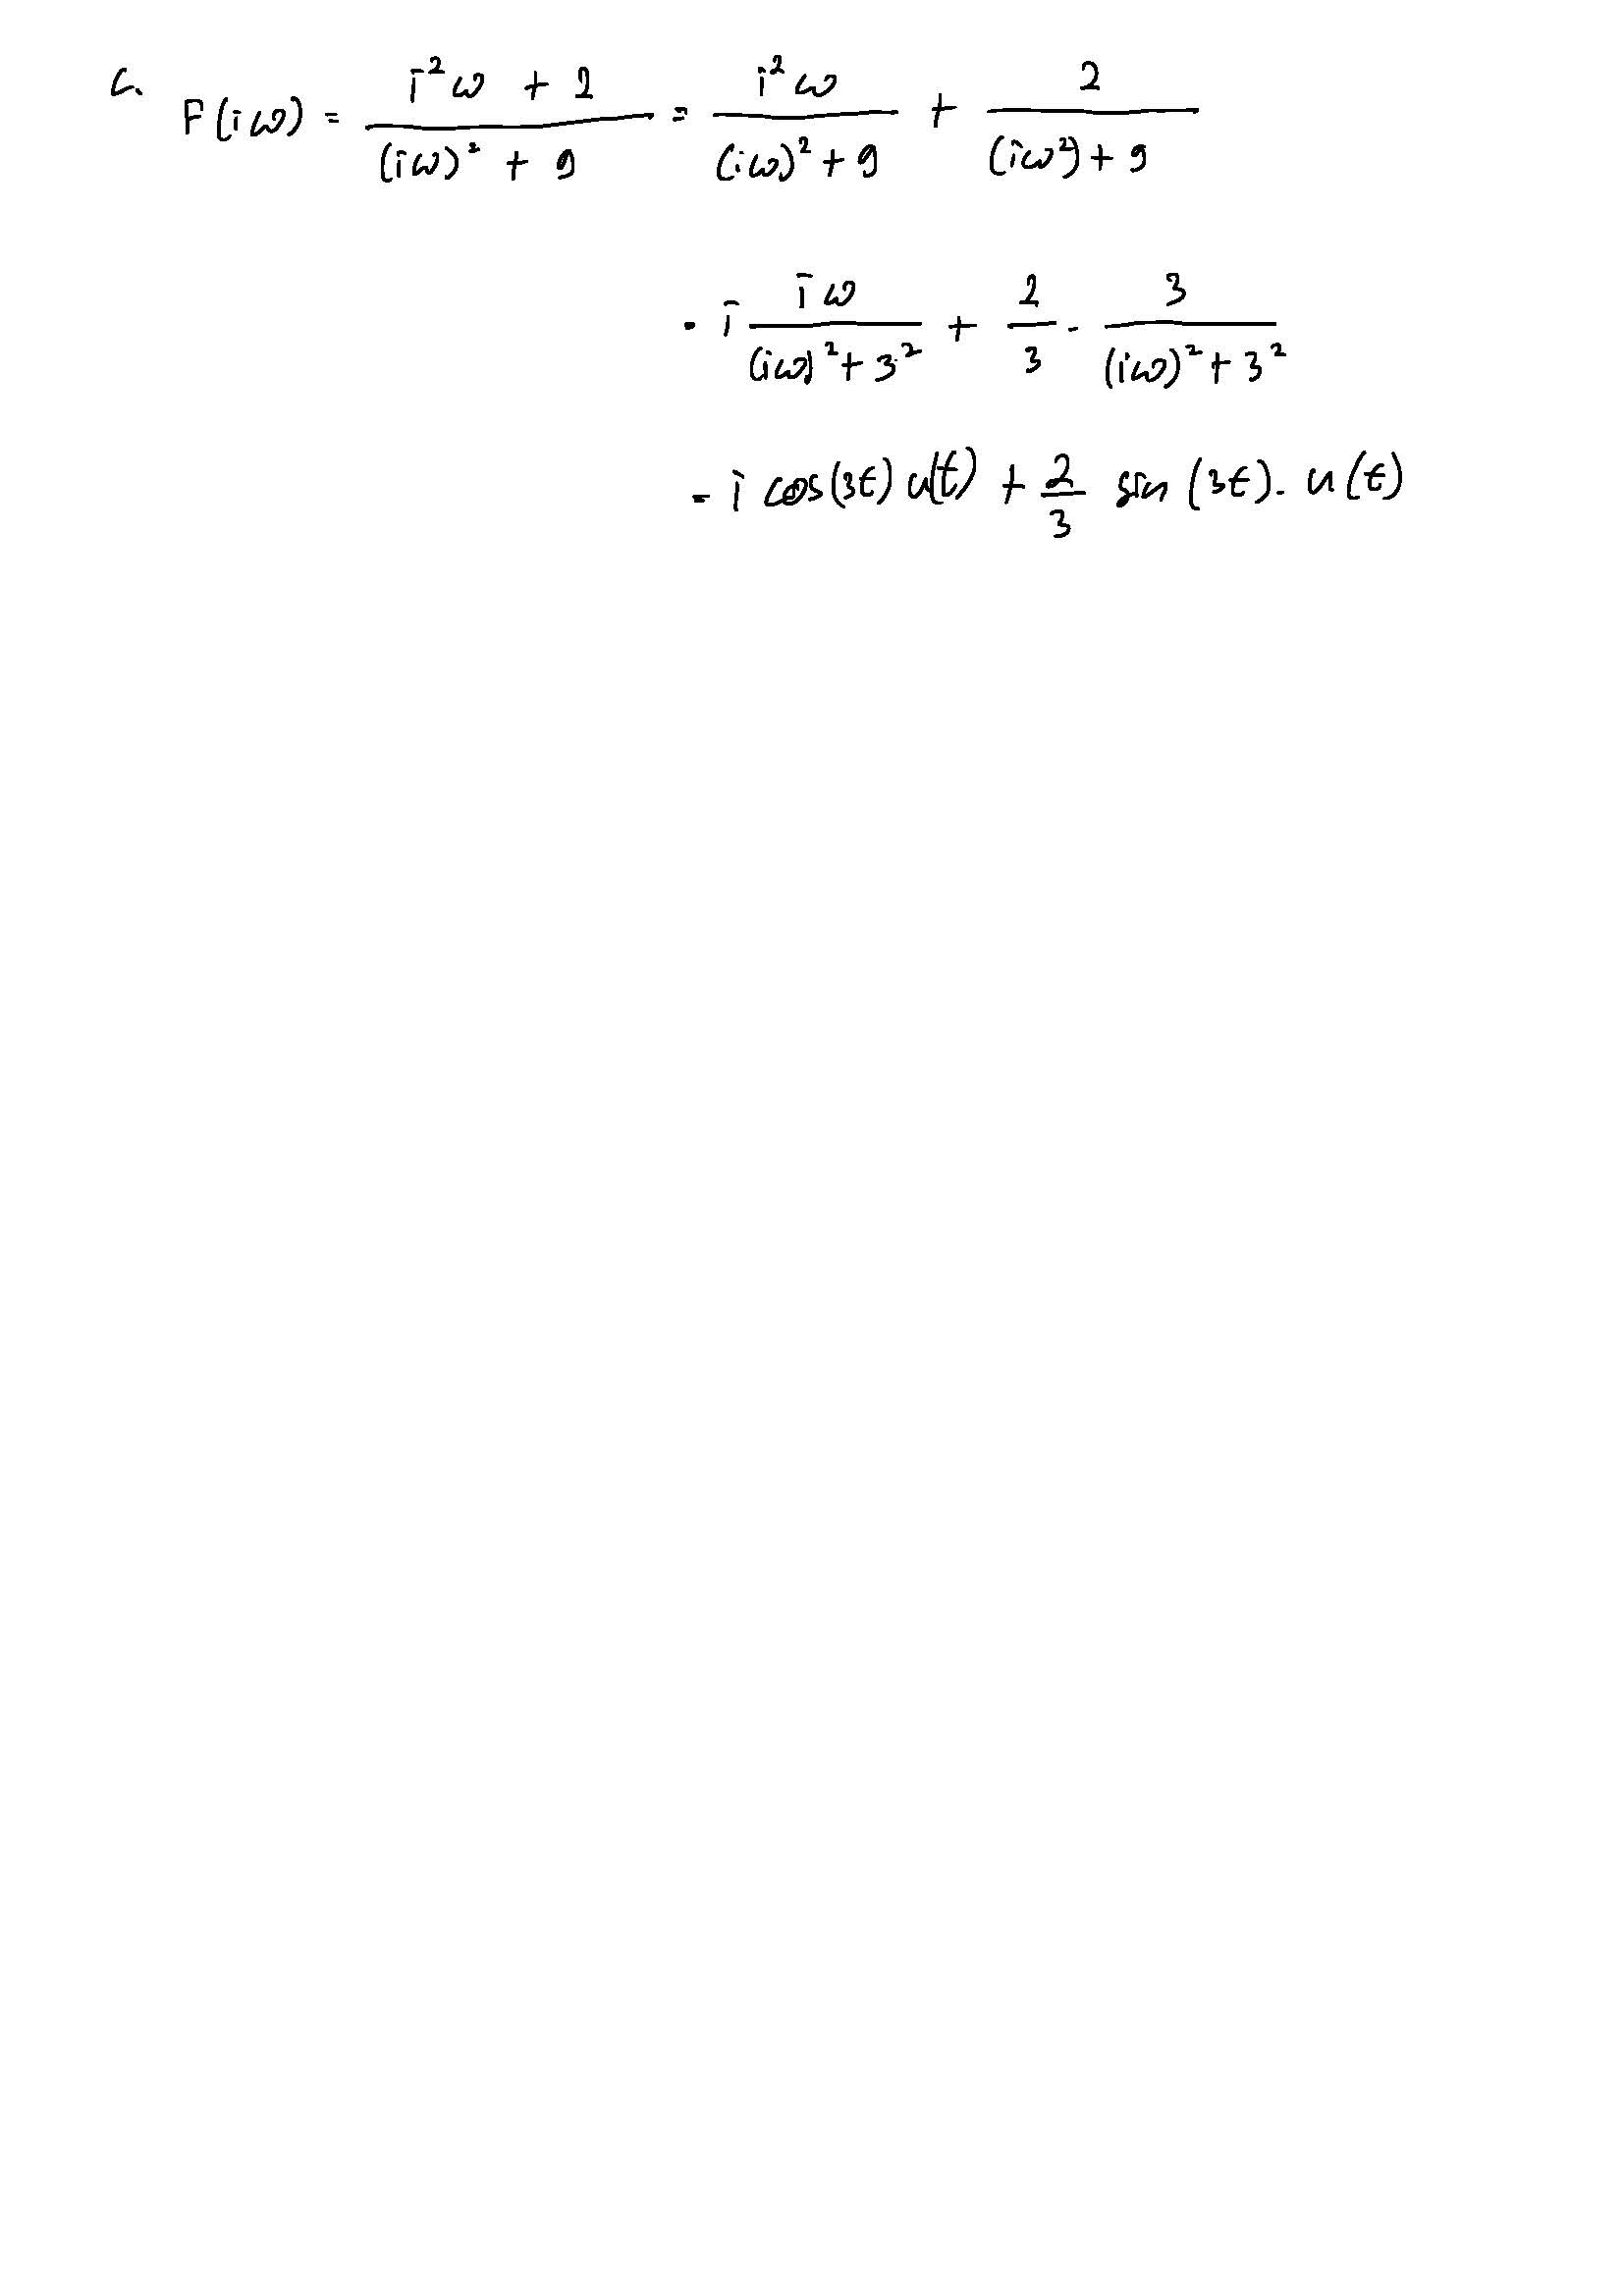 c. F(iω) = (i²ω + 2) / ((iω)² + 9) = i²ω / ((iω)² + 9) + 2 / ((iω²) + 9)
= i iω / ((iω)² + 3²) + 2/3 · 3 / ((iω)² + 3²)
= i cos(3t) u(t) + 2/3 sin(3t) · u(t)